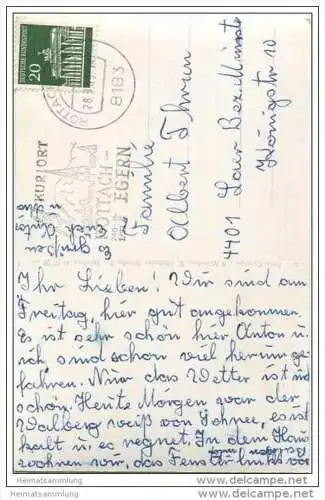 DEUTSCHE BUNDESPOST
20
8183
ROTTACH-
EGERN
KURORT
Familie
Albert Thrun
4401 Laer Bez. Münster
Königstr. 10
Es grüßen
Euch
Ihr Lieben! Wir sind am
Freitag, hier gut angekommen.
Es ist sehr schön hier Anton u.
ich sind schon viel herumge-
fahren. Nur das Wetter ist nicht
schön. Heute Morgen war der
Walberg weiß von Schnee, es ist
kalt u. es regnet. In dem Haus
wohnen wir, das Fenster links
Heimatsammlung.de
Heimatsammlung